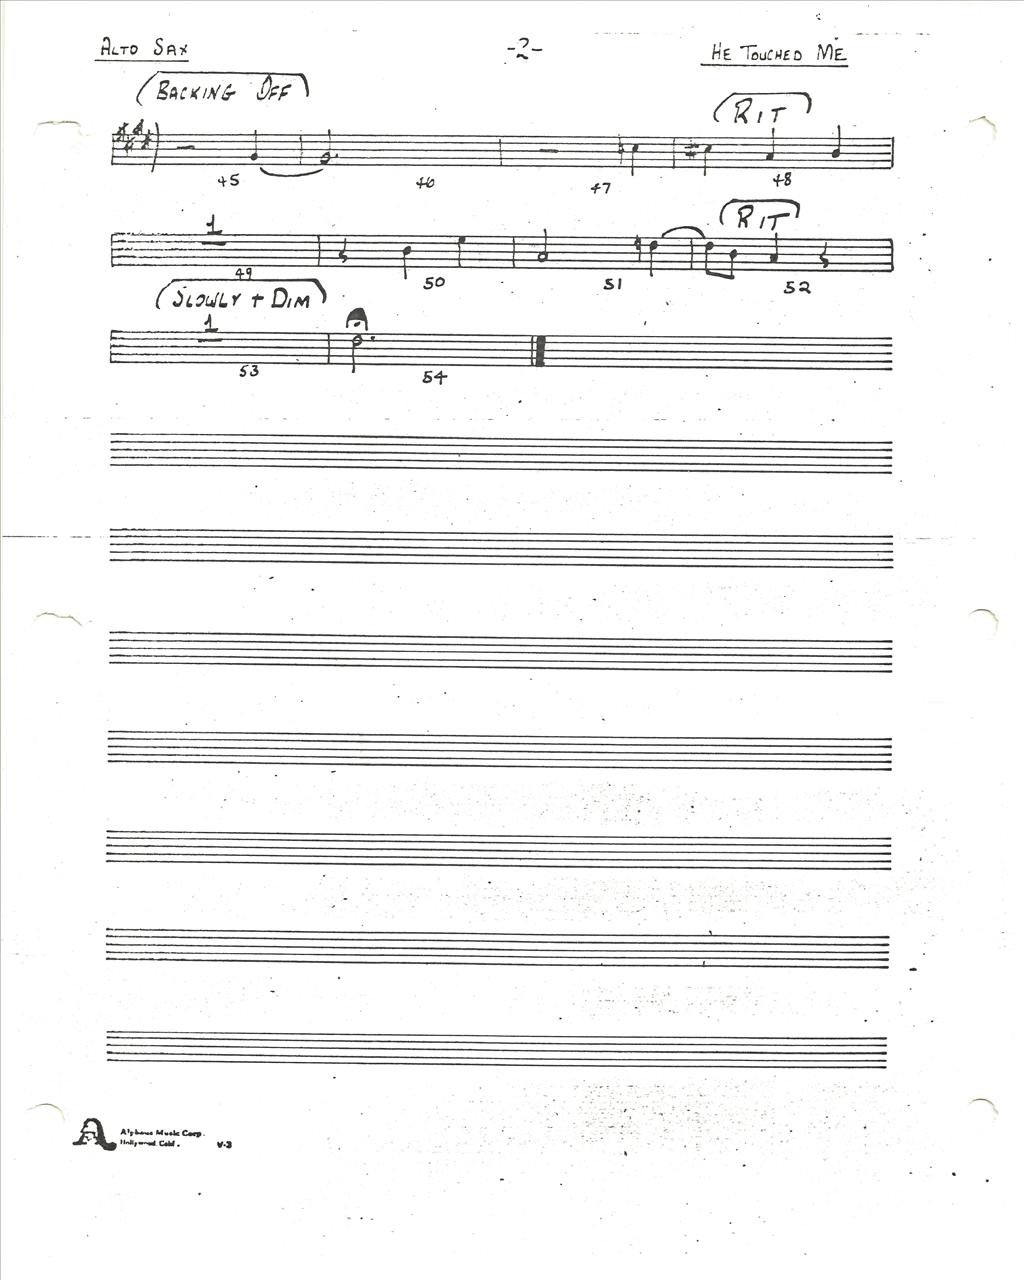 ALTO SAX -2- HE TOUCHED ME
(BACKING OFF)
(RIT)
45 46 47 48
(RIT)
1
49 50 51 52
(SLOWLY + DIM)
1
53 54
Alpheus Music Corp.
Hollywood, Calif. V-3